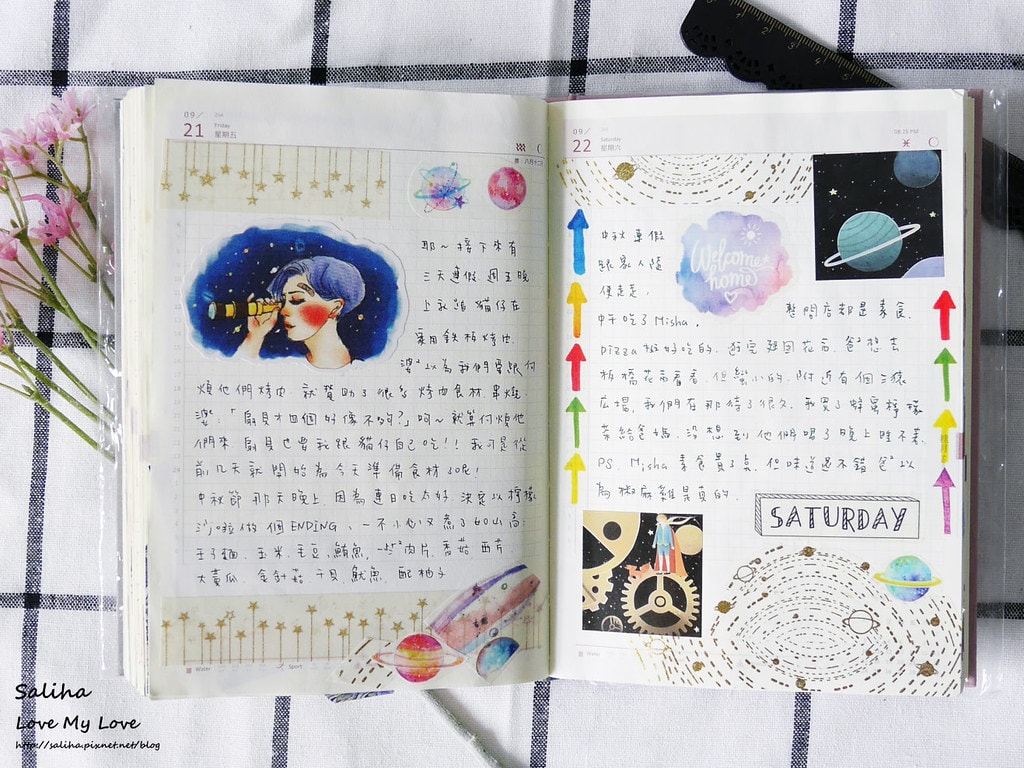 09/
21
Friday
星期五
耶~接下來有
三天連假 週五晚
上永and 貓仔在
家用鐵板烤肉.
婆²以為我們要跟何
煩他們烤肉 就贊助了很多烤肉食材 串燒
婆:「扇貝才四個好像不夠?」呵~就算何煩他
們來 扇貝也要我跟貓仔自己吃!! 我可是從
前几天就開始為今天準備食材了呢!
中秋節那天晚上, 因為連日吃太好, 決定以檸檬
沙啦做個ENDING, 一不小心又煮了
王子麵、玉米、毛豆、鮪魚, 一些²肉片、香菇、西芹
大黃瓜、金針菇、干貝、魷魚, 配柚子
Water
Sport
09/
22
Saturday
星期六
08:25 PM
中秋連假
跟家人隨
便走走,
Welcome
home
中午吃了Misha, 整間店都是素食,
Pizza挺好吃的, 逛完建國花市, 爸²想去
板橋花市看看, 但蠻小的, 附近有個三猿
広場, 我們在那待了很久, 我買了蜂蜜檸檬
茶給爸媽, 沒想到他們喝了晚上睡不著,
PS. Misha素食貴了点, 但味道還不錯 爸²以
為椒麻雞是真的.
SATURDAY
Water
Saliha
Love My Love
http://saliha.pixnet.net/blog